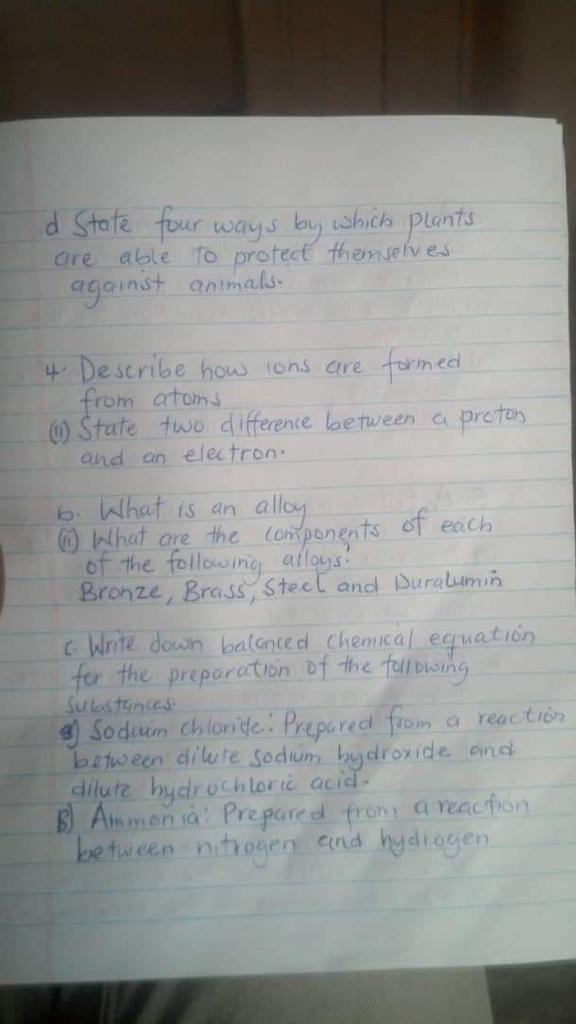 d State four ways by which plants
are able to protect themselves
against animals.
4. Describe how ions are formed
from atoms
(ii) State two difference between a proton
and an electron.
b. What is an alloy
(ii) What are the components of each
of the following alloys?
Bronze, Brass, Steel and Duralumin
c. Write down balanced chemical equation
for the preparation of the following
substances.
a) Sodium chloride: Prepared from a reaction
between dilute sodium hydroxide and
dilute hydrochloric acid.
B) Ammonia: Prepared from a reaction
between nitrogen and hydrogen